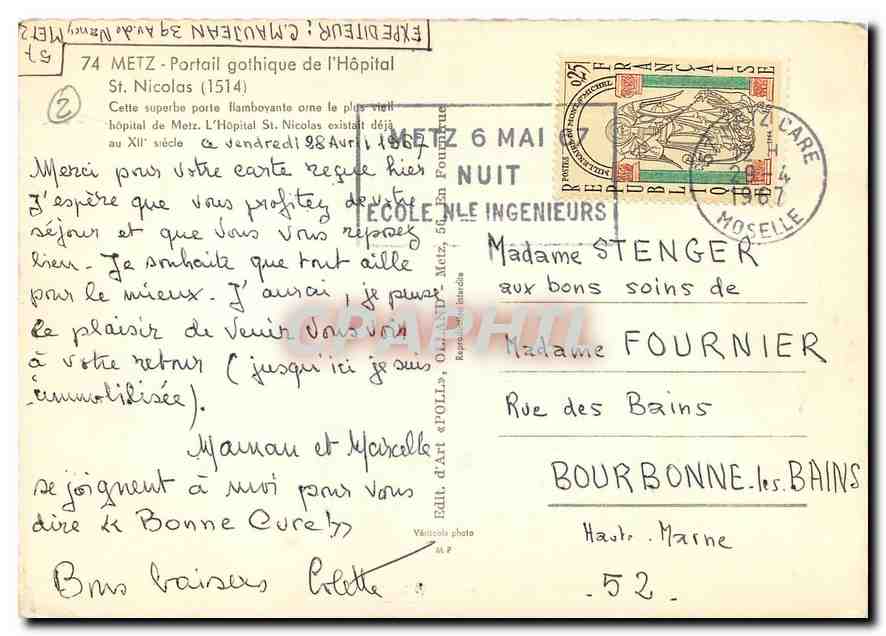 EXPEDITEUR : C. MAUJEAN 39 Av. de Nancy METZ
57
74 METZ - Portail gothique de l'Hôpital
St. Nicolas (1514)
Cette superbe porte flamboyante orne le plus vieil
hôpital de Metz. L'Hôpital St. Nicolas existait déjà
au XIIe siècle
2
Ce vendredi 28 Avril 1967
Merci pour votre carte reçue hier
J'espère que vous profitez de votre
séjour et que vous vous reposez
bien - Je souhaite que tout aille
pour le mieux. J'aurai, je pense
le plaisir de venir vous voir
à votre retour (jusqu'ici je suis
immobilisée).
Maman et Marcelle
se joignent à moi pour vous
dire « Bonne Cure! »
Bons baisers Colette
Edit. d'Art «POLL», OLLAND - Metz, 56, En Fournirue
Reproduction interdite
Véritable photo
M P
METZ 6 MAI 67
NUIT
ECOLE NLE INGENIEURS
REPUBLIQUE FRANCAISE
0,25
POSTES
MILLENAIRE DU MONT-ST-MICHEL
METZ GARE
12 H
29-4
1967
MOSELLE
Madame STENGER
aux bons soins de
Madame FOURNIER
Rue des Bains
BOURBONNE-les-BAINS
Haute-Marne
- 52 -
CRAPHTI